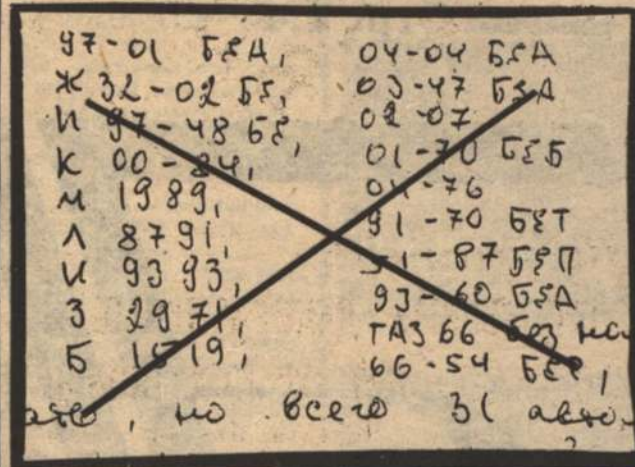 97-01 БЕД,
Ж 32-02 БЕ,
И 97-48 БЕ,
К 00-84,
М 1989,
Л 8791,
И 9393,
З 2971,
Б 1519,
04-04 БЕА
03-47 БЕА
02-07
01-70 БЕБ
01-76
91-70 БЕТ
51-87 БЕП
93-60 БЕА
ГАЗ 66 без но
66-54 БЕР,
но всего 31 авто